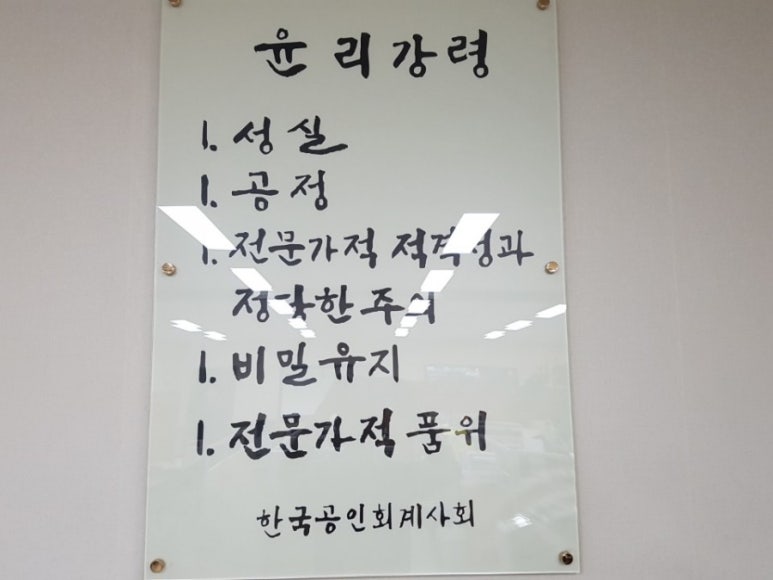 윤리강령
1. 성실
1. 공정
1. 전문가적 적격성과
정당한 주의
1. 비밀유지
1. 전문가적 품위
한국공인회계사회